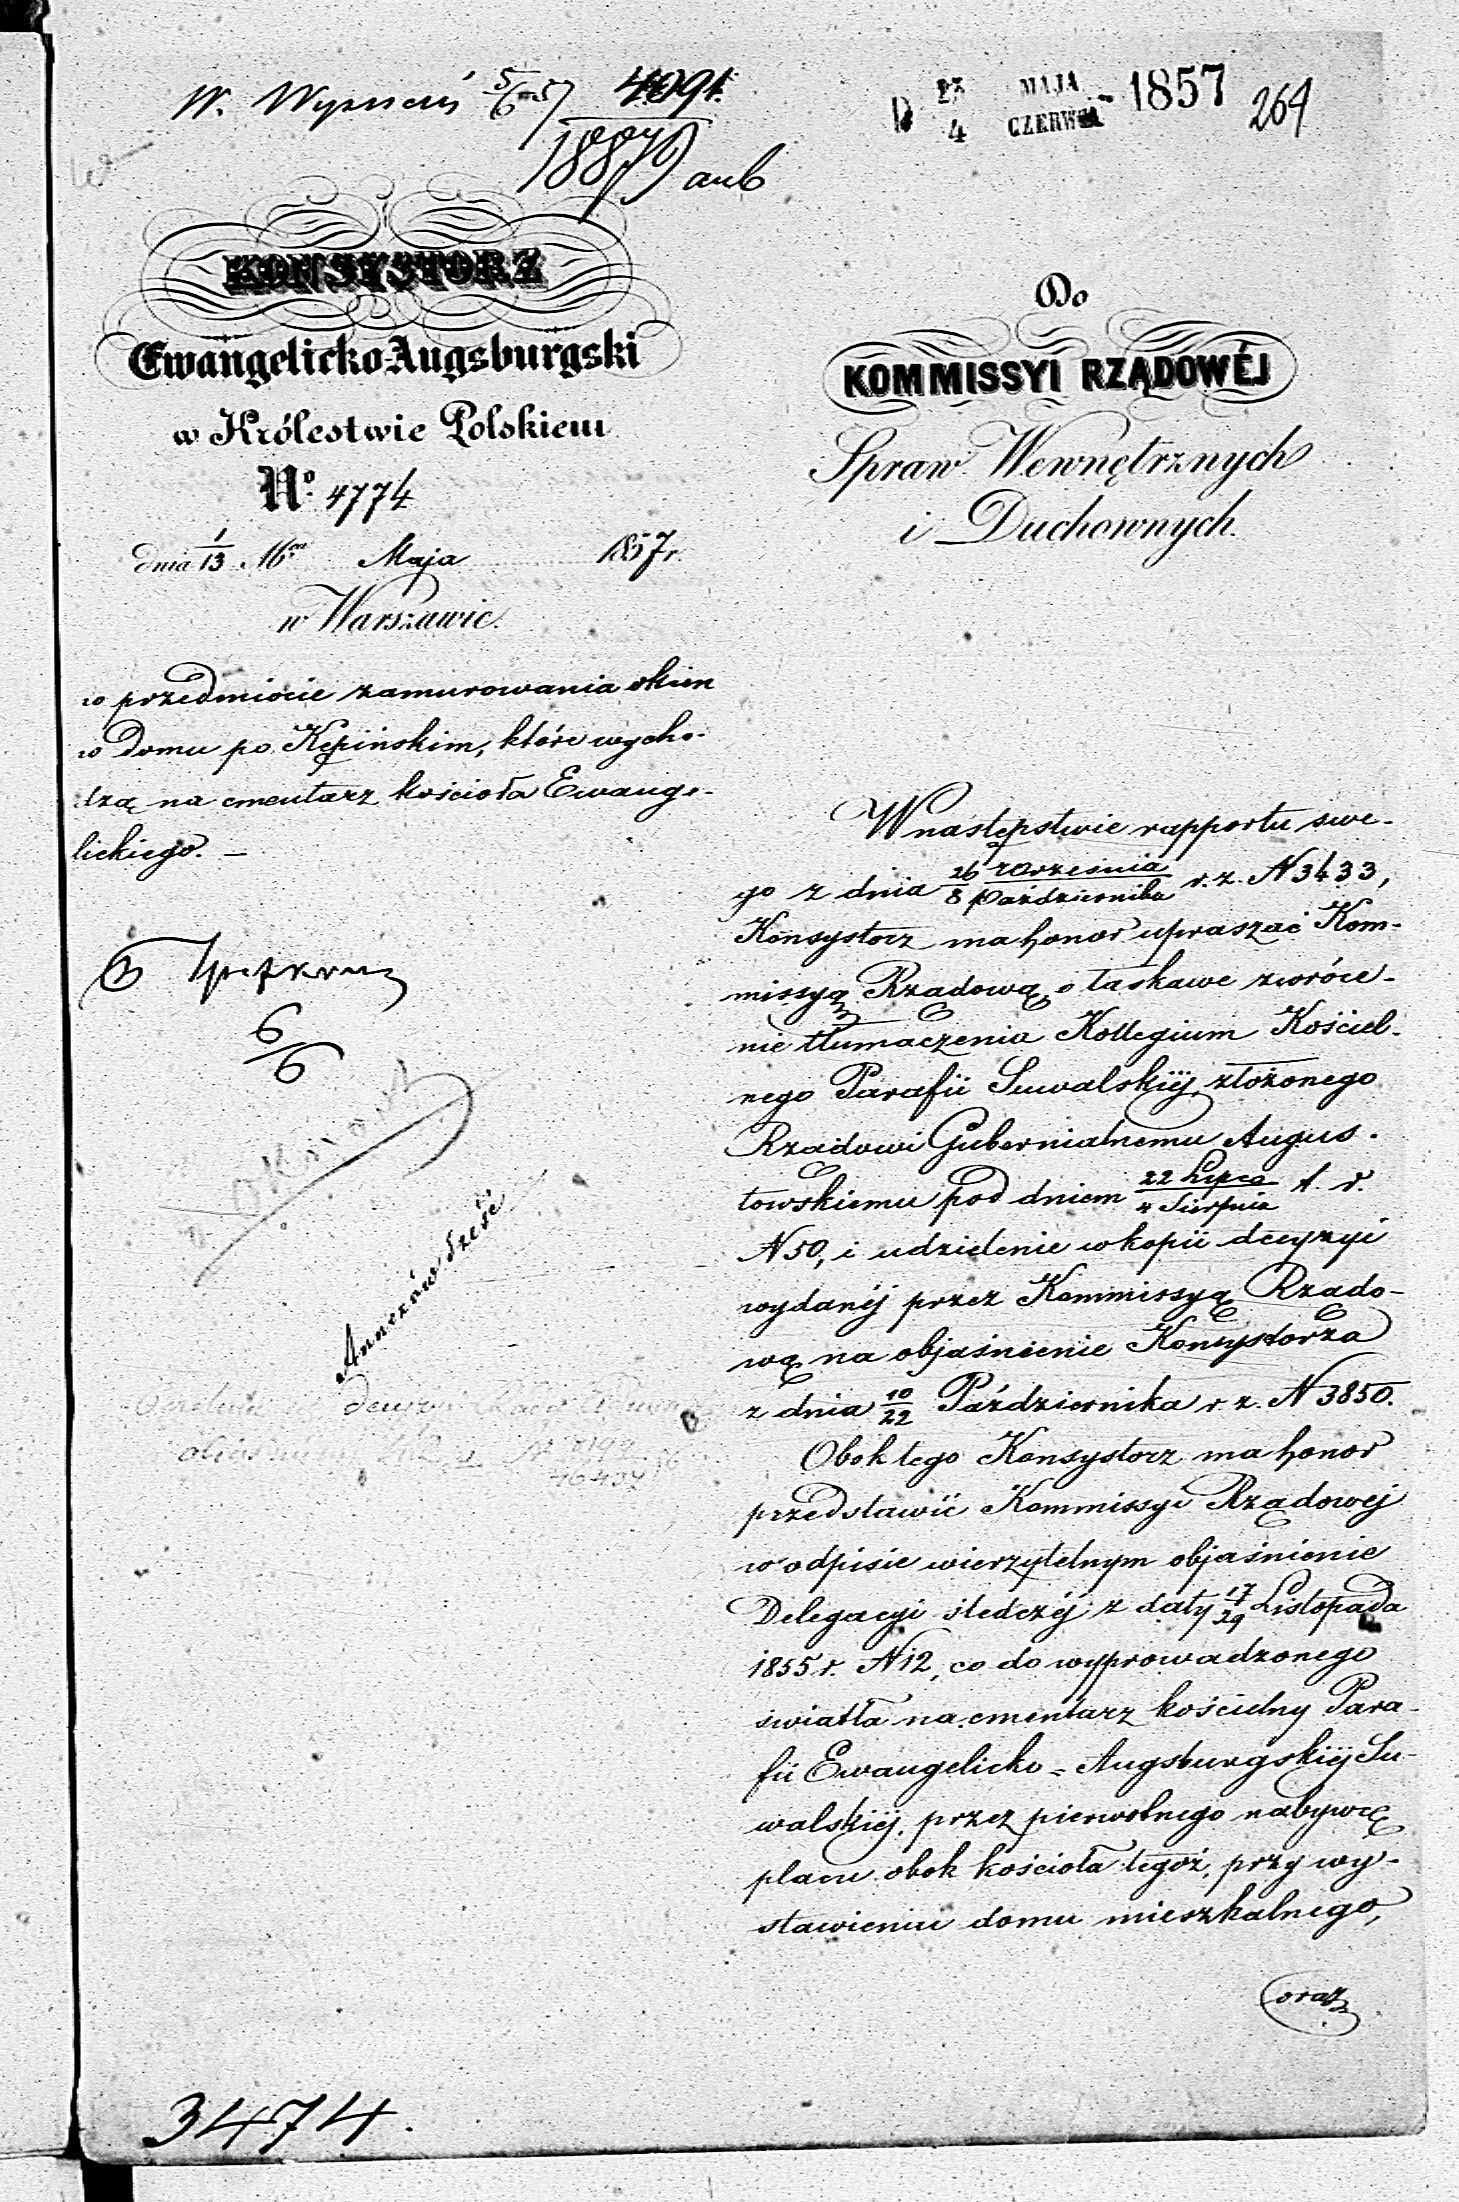 W. Wyprzeń 5/6 57 4091.
18879 aub
D 23 MAJA
4 CZERWCA 1857
264
KONSYSTORZ
Ewangelicko-Augsburgski
w Królestwie Polskiem
No. 4774
dnia 1/13 Mca Maja 1857 r.
w Warszawie.
w przedmiocie zamurowania okien
w Domu po Kępińskim, które wycho-
dzą na cmentarz kościoła Ewange-
lickiego. —
6/6
Annexów sześć
34774.
Do
KOMMISSYI RZĄDOWÉJ
Spraw Wewnętrznych
i Duchownych.
W następstwie rapportu swe-
go z dnia 26 Września / 8 Października r. z. N 3433,
Konsystorz ma honor upraszać Kom-
missyą Rządową o łaskawe zwróce-
nie tłumaczenia Kollegium Kościel-
nego Parafii Suwalskiéj, złożonego
Rządowi Gubernialnemu Augus-
towskiemu pod dniem 22 Lipca / 4 Sierpnia t. r.
N 50, i udzielenie w kopii decyzyi
wydanéj przez Kommissyą Rządo-
wą na objaśnienie Konsystorza
z dnia 10/22 Października r. z. N 3850.
Obok tego Konsystorz ma honor
przedstawić Kommissyi Rządowej
w odpisie wierzytelnym objaśnienie
Delegacyi śledczéj z daty 17/29 Listopada
1855 r. N 12, co do wyprowadzonego
światła na cmentarz kościelny Para-
fii Ewangelicko-Augsburgskiéj Su-
walskiéj, przez pierwotnego nabywcę
placu obok kościoła tegoż, przy wy-
stawieniu domu mieszkalnego,
oraz